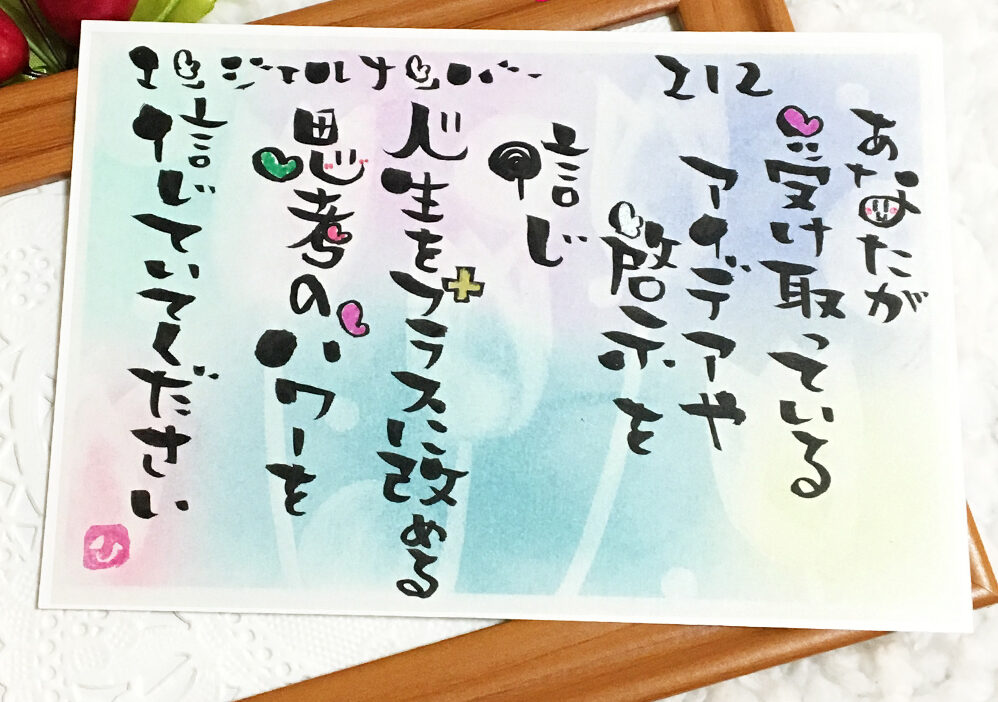 エンジェルナンバー 212
あなたが
受け取っている
アイデアや
啓示を
信じ
人生をプラスに改める
思考のパワーを
信じていてください